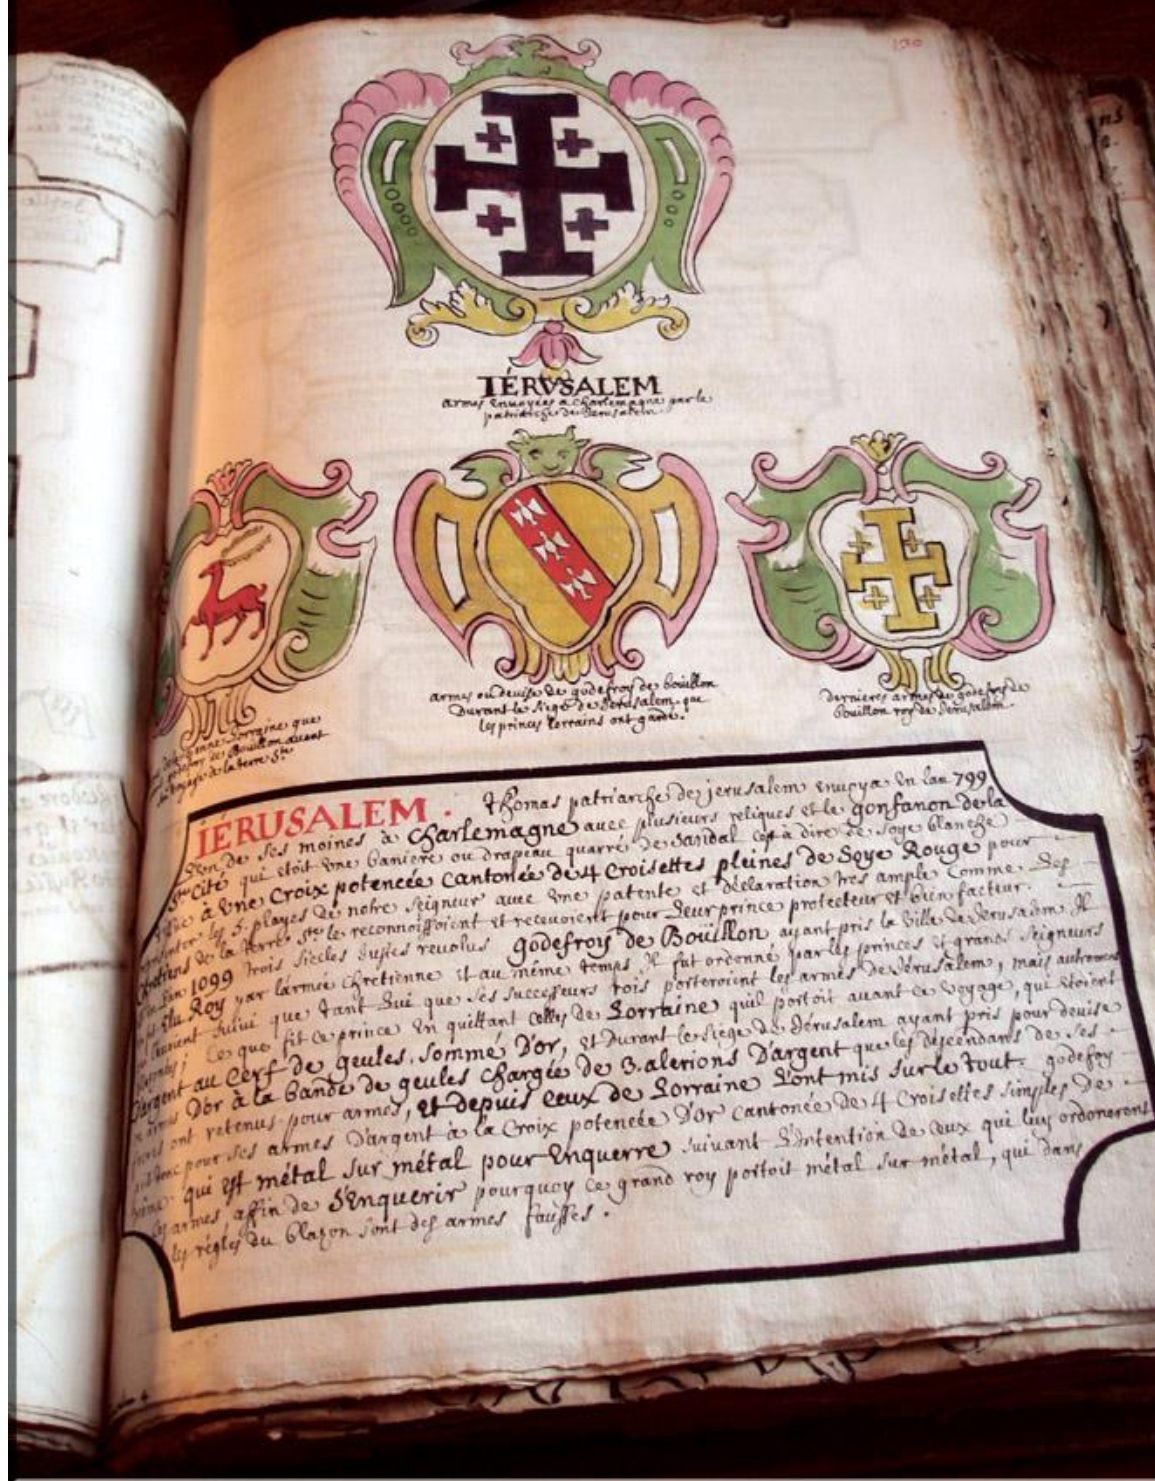 130
IÉRVSALEM
armes Envoyées a Charlemagne par le
patriarche de Jerusalem.
Lorraine que
godefroy de Bouillon avant
voyage de la terre Ste
armes ou devise de godefroy de bouillon
Durant le siege de Jerusalem que
les princes lorrains ont gardé.
Dernieres armes de godefroy de
bouillon roy de Jerusalem.
IERUSALEM. Thomas patriarche de jerusalem envoya En lan 799
de ses moines à Charlemagne avec plusieurs reliques et le gonfanon de la
Ste Cité qui étoit une baniere ou drapeau quarré de Sandal c'est à dire de soye blanche
à Une Croix potencée Cantonée de 4 Croisettes pleines de Soye Rouge pour
les 5. playes de notre Seigneur avec une patente et déclaration tres ample Comme
de la terre Ste le reconnoissoient et recevoient pour Leur prince protecteur et bien facteur.
1099 trois siécles justes revolus godefroy de Bouillon ayant pris la Ville de Jerusalem Il
Elu Roy par l'armée Chrétienne et au même temps Il fut ordonné par les princes et grands Seigneurs
que tant Lui que ses successeurs rois porteroient les armes de Jérusalem, mais autrement
Ce que fit Ce prince En quittant Celles de Lorraine qu'il portoit avant Ce voyage, qui étoient
D'argent au Cerf de geules, Sommé D'or, et Durant le siege de Jérusalem ayant pris pour devise
D'or à la bande de geules Chargée de 3. alerions D'argent que les descendants de ses
ont retenus pour armes, Et depuis ceux de Lorraine L'ont mis sur le tout. godefroy
pour ses armes D'argent à la Croix potencée D'or Cantonée de 4 Croisettes simples de
qui est métal sur métal pour Enquerre suivant L'intention de Ceux qui luy ordonerent
armes, affin de S'Enquerir pourquoy Ce grand roy portoit métal sur métal, qui dans
les régles du blazon sont des armes fausses.